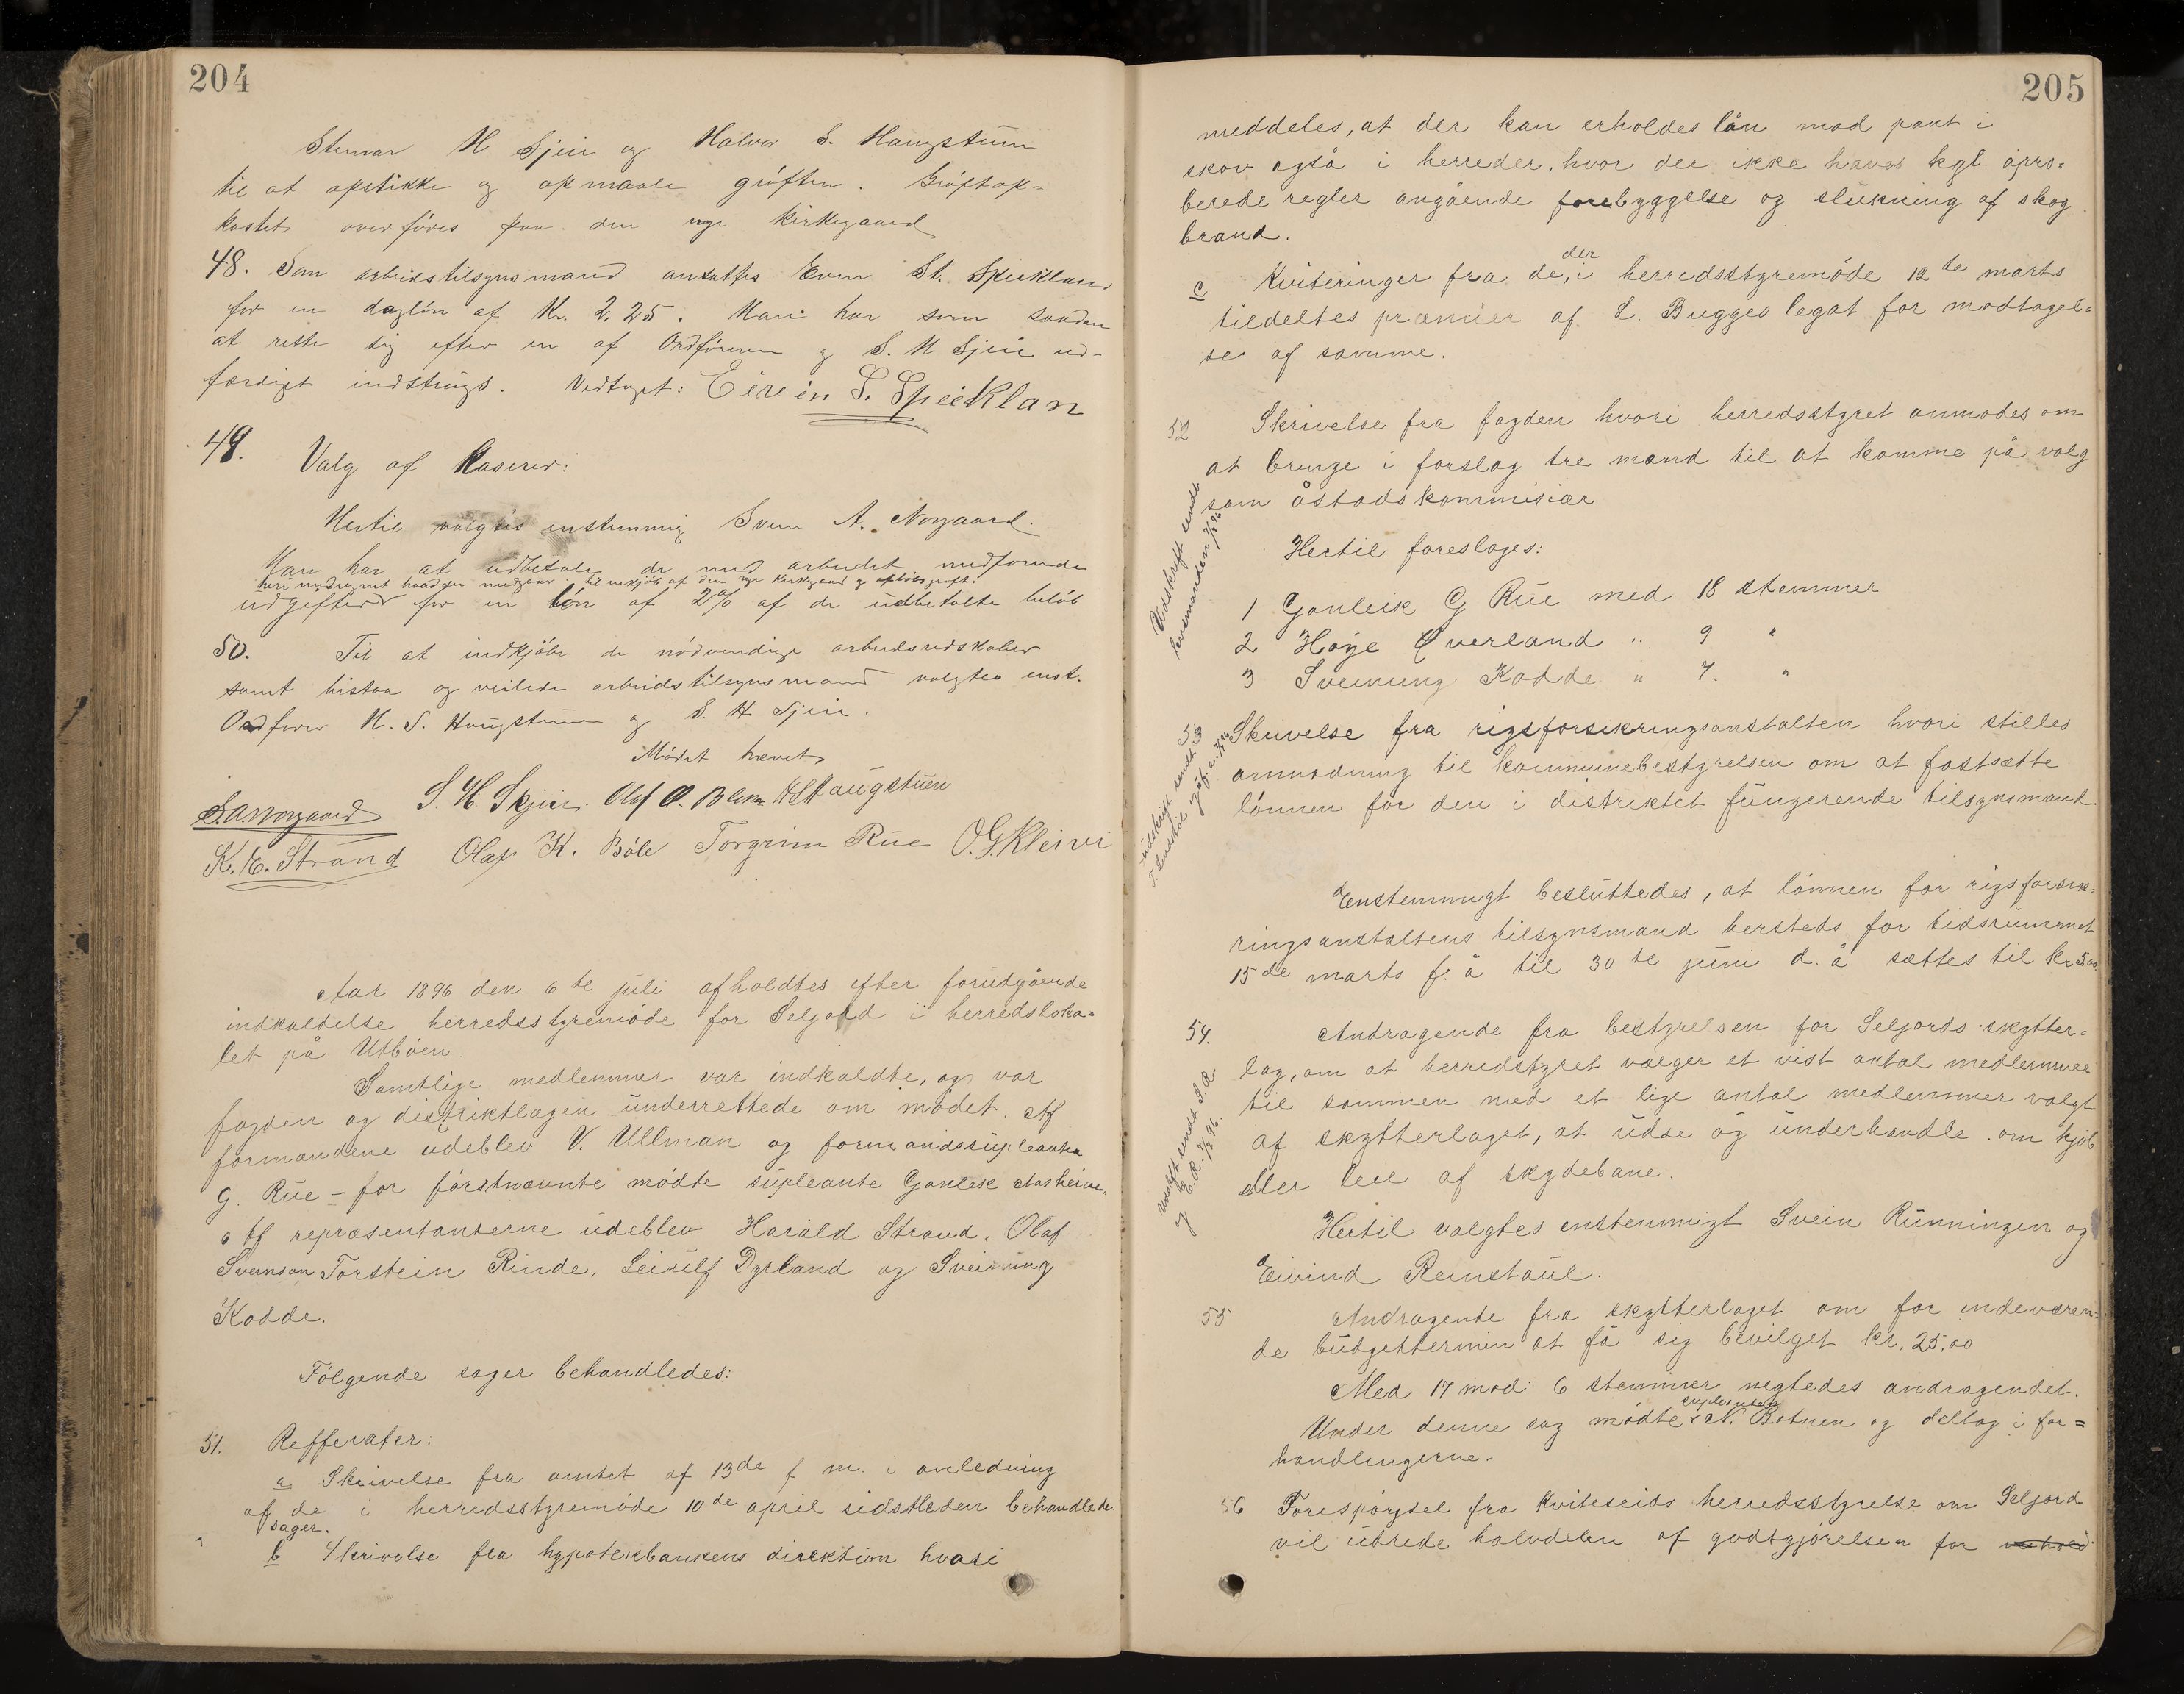 204
Steinar H Sjeii og Halvor S. Haugstuen
til at opstikke og opmaale grøften. Grøftop-
kastet overføres paa den nye kirkegaard
48. Som arbeidstilsynsmand ansattes Even St. Speiklan
for en dagløn af Kr. 2,25. Han har som saadan
at rette sig efter en af Ordføreren og S. H Sjeii ud-
færdiget indstrugs. Vedtaget: Eivein S. SpeiKlan
49.
Valg af Kaserer:
Hertil valgtes enstemmig Svein A. Norgaard.
Han har at udbetale de med arbeidet medførende
heri medregnet hvad der medgaar til indkjøb af den nye kirkegaard og
udgifter for en løn af 2% af de udbetalte beløb
50. Til at indkjøbe de nødvendige arbeidsredskaber
samt bistaa og veilede arbeidstilsynsmand valgtes enst.
Ordfører H. S. Haugstuen og S. H. Sjeii.
Mødet hævet
S.A. Norgaard S. H. Skjeii. Olaf O. Blem H S Haugstuen
K. E. Strand Olaf K. Bøle Torgrim Rue O.G. Kleivi
Aar 1896 den 6te juli afholdtes efter forudgående
indkaldelse herredsstyremøde for Seljord i herredsloka-
let på Utbøen.
Samtlige medlemmer var indkaldte, og var
fogden og distriktlægen underrettede om mødet. Af
formandene udeblev V. Ullman og formandssupleanten
G. Rue – for førstnævnte mødte supleante Gunlek Aasheim.
Af repræsentanterne udeblev Harald Strand, Olaf
Svenson Torstein Rinde, Leiulf Dyrland og Sveinung
Kodde.
Følgende sager behandledes:
51. Refferater:
a Skrivelse fra amtet af 13de f m. i anledning
af de i herredsstyremøde 10de april sidstleden behandlede
sager.
b Skrivelse fra hypotekbankens direktion hvori
205
meddeles, at der kan erholdes lån mod pant i
skov også i herreder, hvor der ikke haves kgl. apro-
berede regler angående forebyggelse og slukning af skog
brand.
der
c Kviteringer fra de, i herredsstyremøde 12te marts
tildeltes præmier af L. Bugges legat for modtagel-
se af samme.
52 Skrivelse fra fogden hvori herredsstyret anmodes om
at bringe i forslag tre mænd til at komme på valg
som åstadskommisiær
Udskrift sendt
lensmanden
Hertil foreslages:
1 Gunleik G Rue med 18 stemmer
2 Høye Øverland " 9 "
3 Sveinung Kodde " 7. "
53 Skrivelse fra rigsforsikringsanstalten hvori stilles
anmodning til kommunebestyrelsen om at fastsætte
lønnen for den i distriktet fungerende tilsynsmand.
udskrift sendt
Enstemmigt besluttedes, at lønnen for rigsforsik-
ringsanstaltens tilsynsmand hersteds for tidsrummet
15de marts f. å til 30te juni d. å sættes til kr
54. Andragende fra bestyrelsen for Seljords skytter-
lag, om at herredstyret vælger et vist antal medlemmer
til sammen med et lige antal medlemmer valgt
af skytterlaget, at udse og underhandle om kjøb
eller leie af skydebane.
sendt S. R.
og E.R.
Hertil valgtes enstemmigt Svein Rünningen og
Eivind Reinstaul.
55 Andragende fra skytterlaget om for indeværen-
de budgettermin at få sig bevilget kr. 25.00
Med 17 mod 6 stemmer negtedes andragendet.
supleanten
Under denne sag mødte N. Botnen og deltog i for-
handlingerne.
56 Forespørgsel fra Kviteseids herredsstyrelse om Seljord
vil utrede halvdelen af godtgjørelsen for